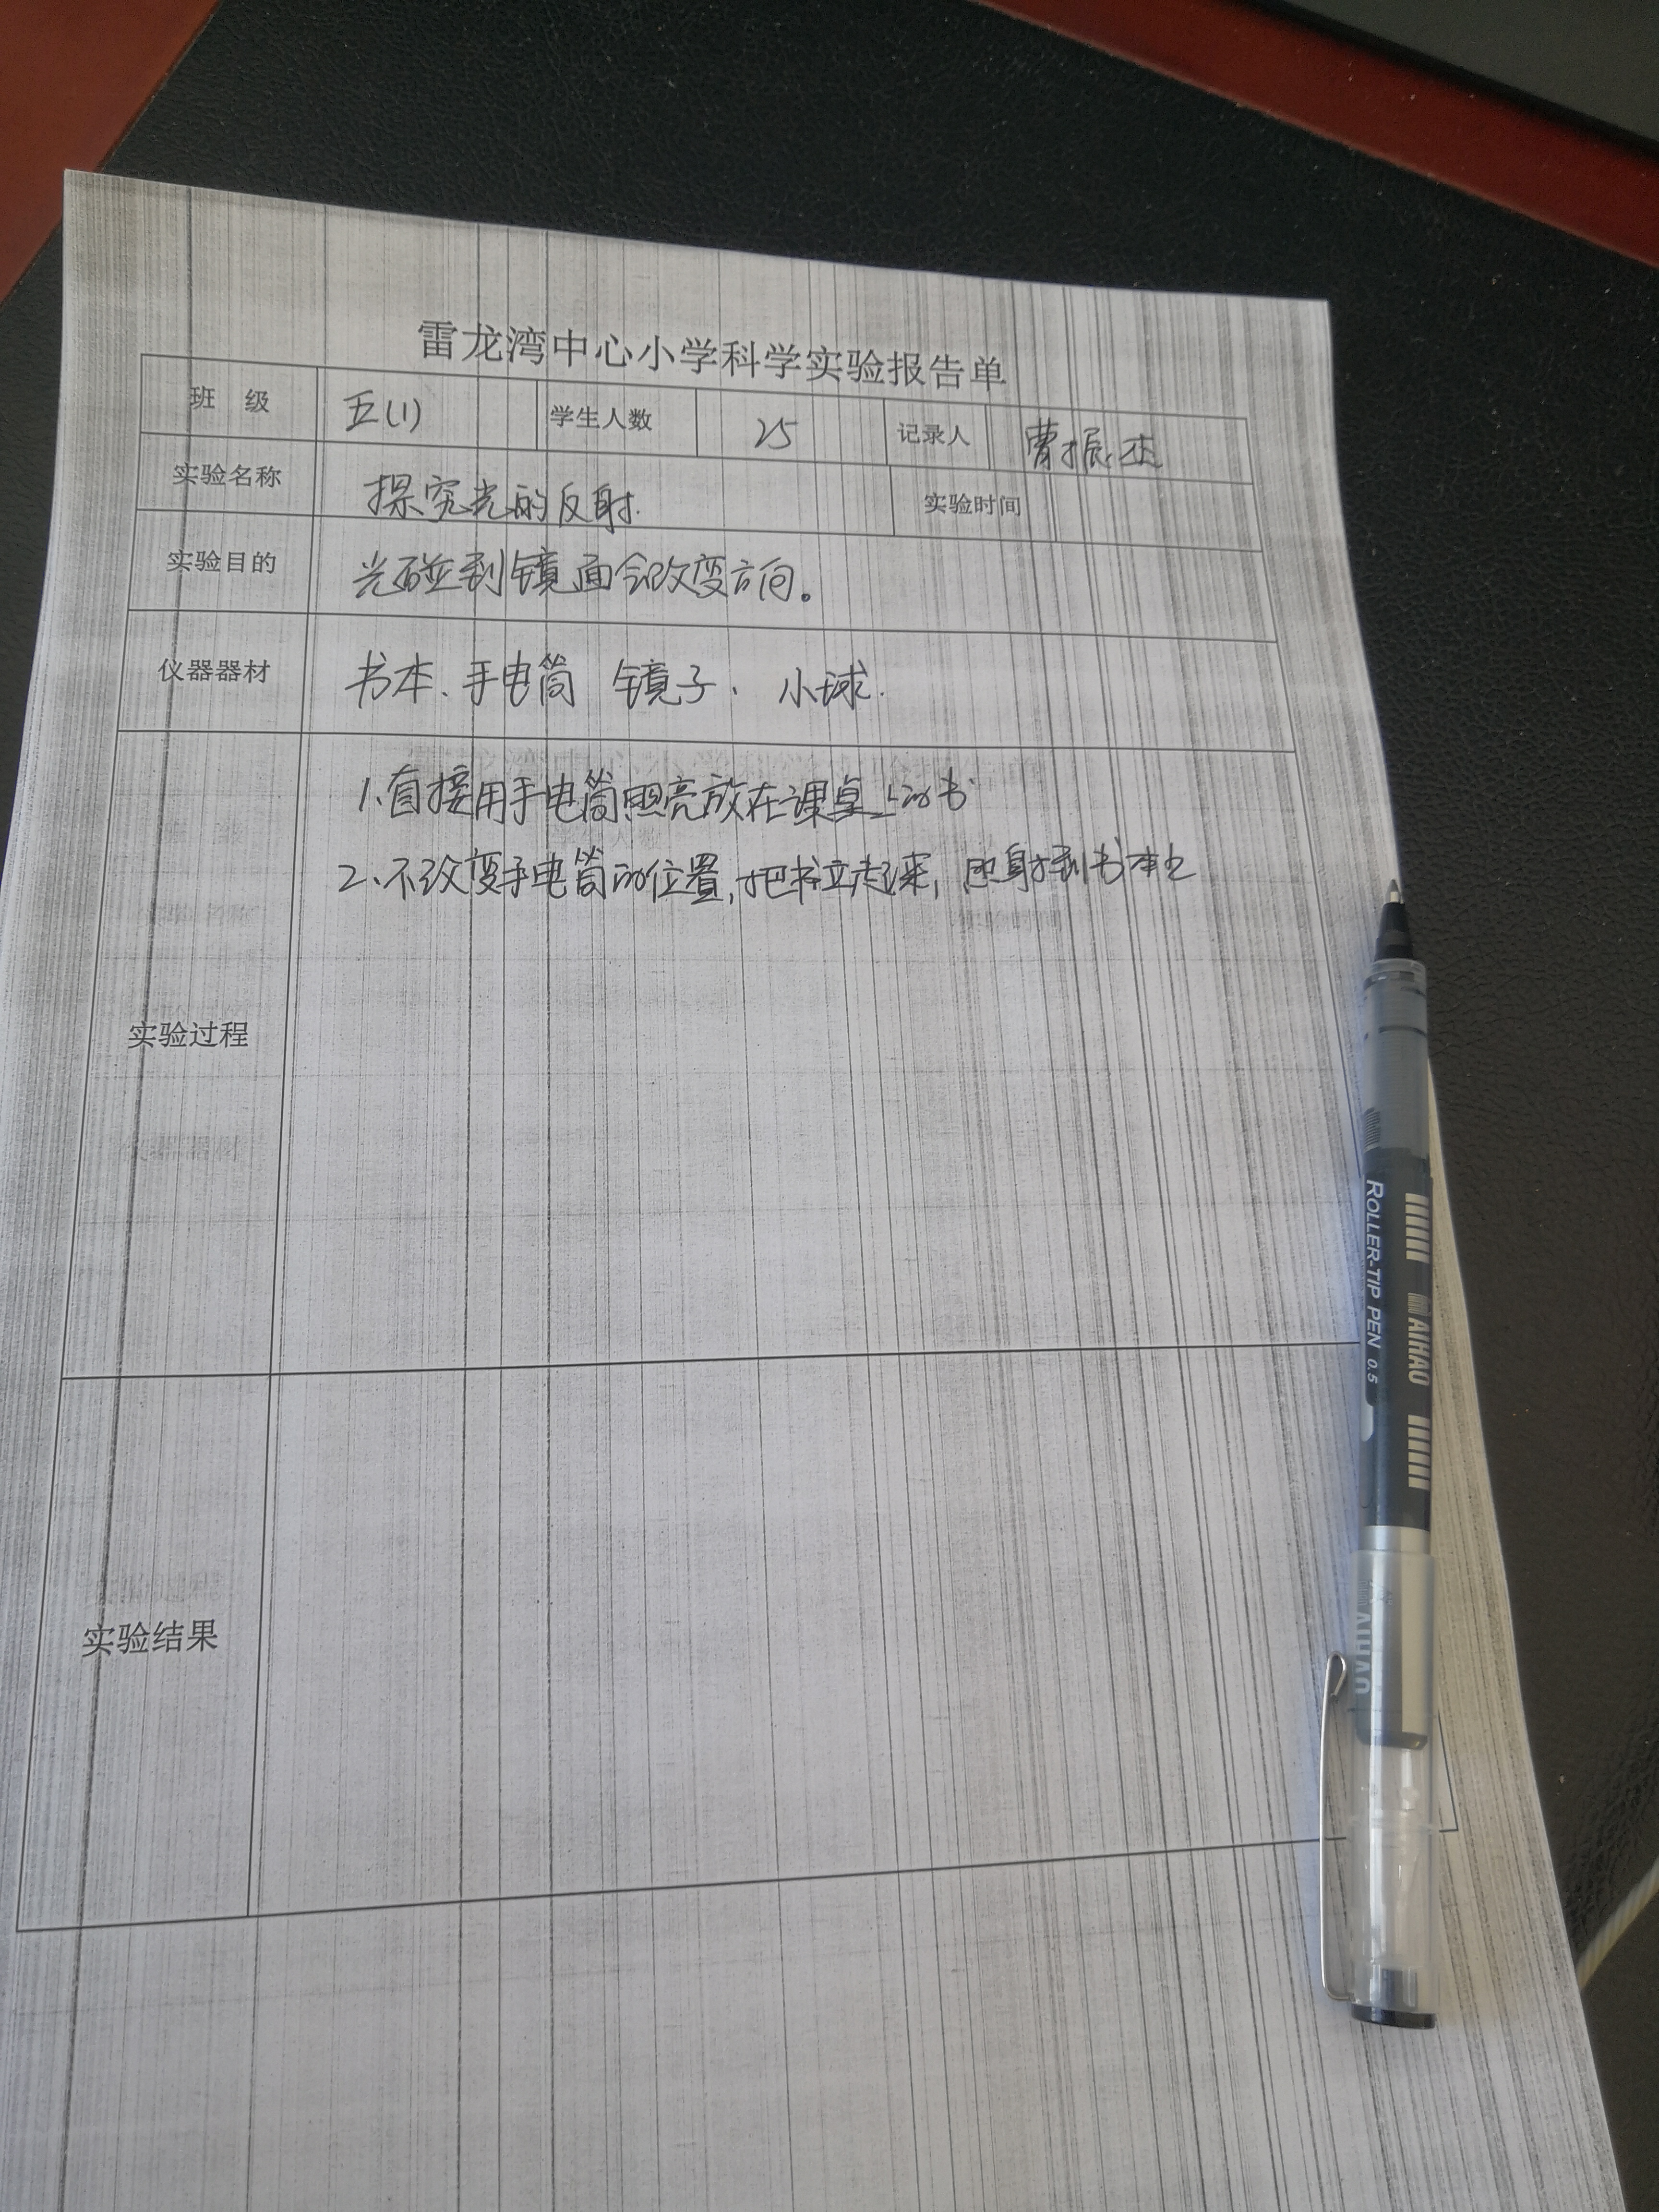 雷龙湾中心小学科学实验报告单
班 级 五(1) 学生人数 25 记录人 曹振杰
实验名称 探究光的反射. 实验时间
实验目的 光碰到镜面会改变方向。
仪器器材 书本、手电筒 镜子、小球.
1、直接用手电筒照亮放在课桌上的书
2、不改变手电筒的位置,把书立起来, 照射到书本上
实验过程
实验结果
ROLLER-TIP PEN 0.5
AIHAO
AIHAO